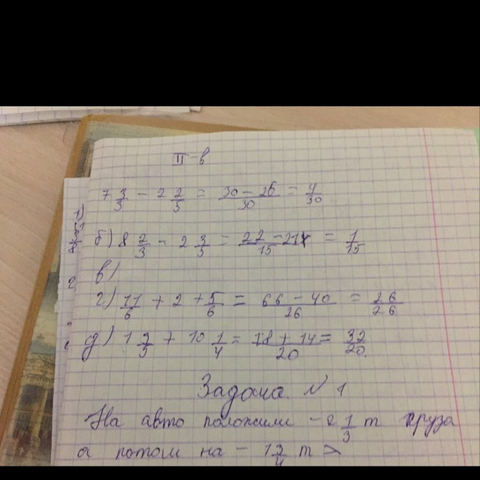 II-в
7 3/3 - 2 2/5 = 30-26/30 = 4/30
б) 8 2/3 - 2 3/5 = 22-21/15 = 1/15
в)
г) 11/6 + 2 + 5/6 = 66-40/26 = 26/26
д) 1 2/5 + 10 1/4 = 18+14/20 = 32/20
Задача N 1
На авто положили - 2 1/3 т груза
а потом на - 1 3/4 т >